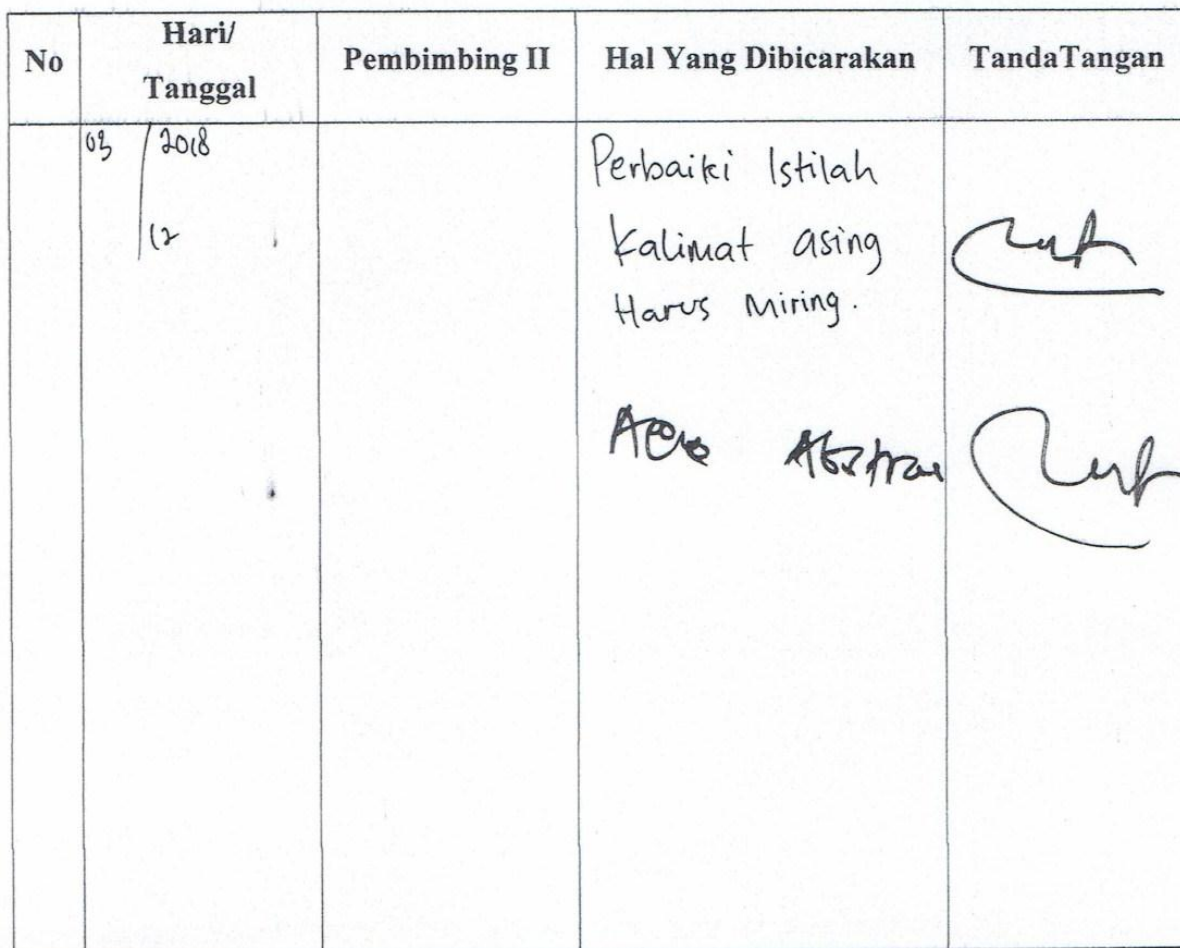 No
Hari/
Tanggal
Pembimbing II
Hal Yang Dibicarakan
TandaTangan
03 / 2018
12
Perbaiki Istilah
Kalimat asing
Harus Miring.